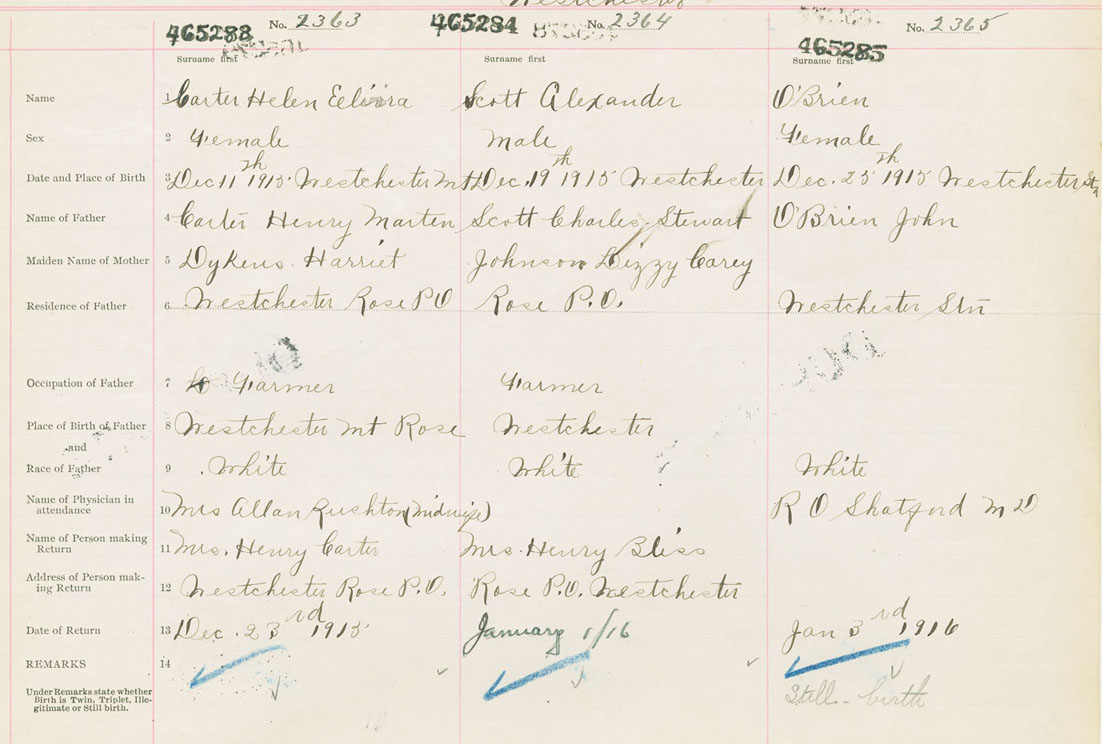 Westchester
No. 2363 No. 2364 No. 2365
465283 465284 465285
Surname first Surname first Surname first
Name 1 Carter Helen Scott Alexander O'Brien
Sex 2 Female Male Female
Date and Place of Birth 3 Dec 11th 1915 Westchester Mt Dec. 19th 1915 Westchester Dec. 25th 1915 Westchester Stn
Name of Father 4 Carter Henry Marten Scott Charles Stewart O'Brien John
Maiden Name of Mother 5 Dykens Harriet Johnson Lizzy Carey
Residence of Father 6 Westchester Rose P O Rose P.O. Westchester Stn
Occupation of Father 7 Farmer Farmer
Place of Birth of Father 8 Westchester Mt Rose Westchester
and
Race of Father 9 White White White
Name of Physician in
attendance 10 Mrs Allan Rushton (Midwife) R O Shatford M D
Name of Person making
Return 11 Mrs. Henry Carter Mrs. Henry Bliss
Address of Person mak-
ing Return 12 Westchester Rose P.O. Rose P.O. Westchester
Date of Return 13 Dec. 23rd 1915 January 1/16 Jan 3rd 1916
REMARKS 14
Under Remarks state whether
Birth is Twin, Triplet, Ille-
gitimate or Still birth. Still-birth